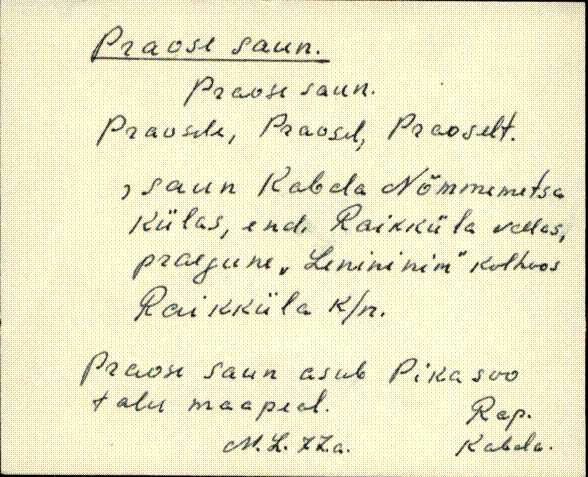 Praose saun.
Praose saun.
Praosele, Praosel, Praoselt.
, saun Kabala Nõmmemetsa
külas, end. Raikküla vallas,
praegune „Lenininim" kolhoos
Raikküla k/n.
Praose saun asub Pikasoo
talu maapeal.
Rap.
Kabala.